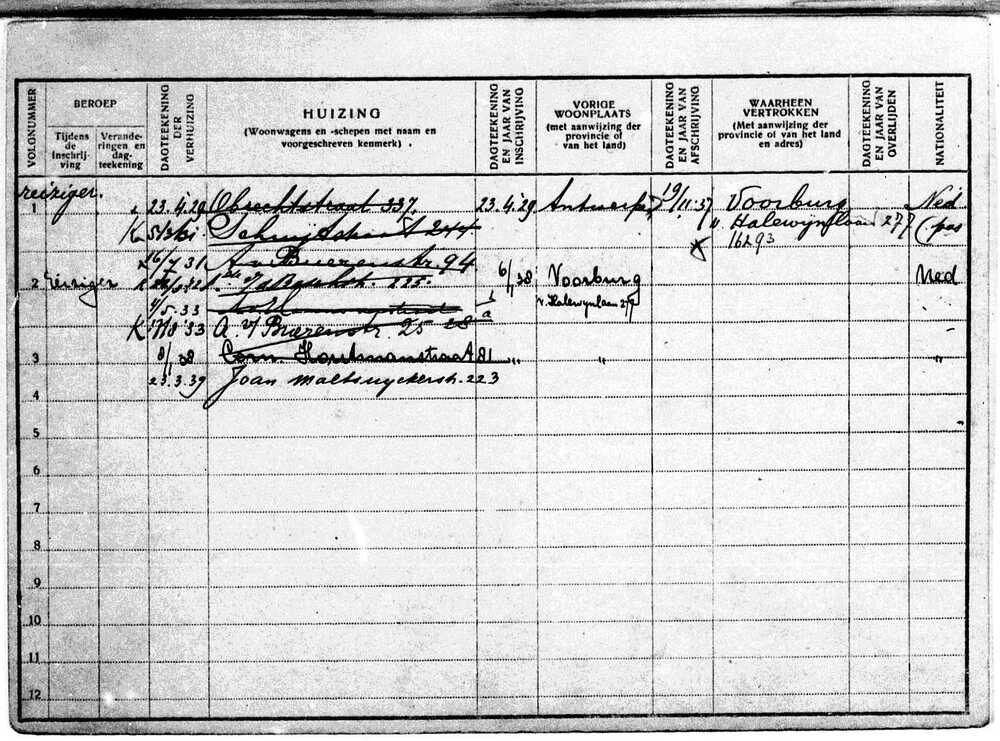 VOLGNUMMER
BEROEP
Tijdens de inschrijving
Veranderingen en dagteekening
DAGTEEKENING DER VERHUIZING
HUIZING
(Woonwagens en -schepen met naam en
voorgeschreven kenmerk)
DAGTEEKENING EN JAAR VAN INSCHRIJVING
VORIGE
WOONPLAATS
(met aanwijzing der
provincie of
van het land)
DAGTEEKENING EN JAAR VAN AFSCHRIJVING
WAARHEEN
VERTROKKEN
(Met aanwijzing der
provincie of van het land
en adres)
DAGTEEKENING EN JAAR VAN OVERLIJDEN
NATIONALITEIT
reiziger.
1 23.4.29 Obrechtstraat 337. 23.4.29 Antwerpen 19/11.37 Voorburg Ned
K 244 " Halewynlaan 277 (pas
16293
31 94
2 reiziger K 225. 6/38 Voorburg Ned
/5.33 v. Halewynlaan 277
K 33 A. v/ Buerenstr. 25
3 8/38 Corn. Houtmanstraat 81 " " "
23.3.39 Joan Maetsuyckerstr. 223
4
5
6
7
8
9
10
11
12